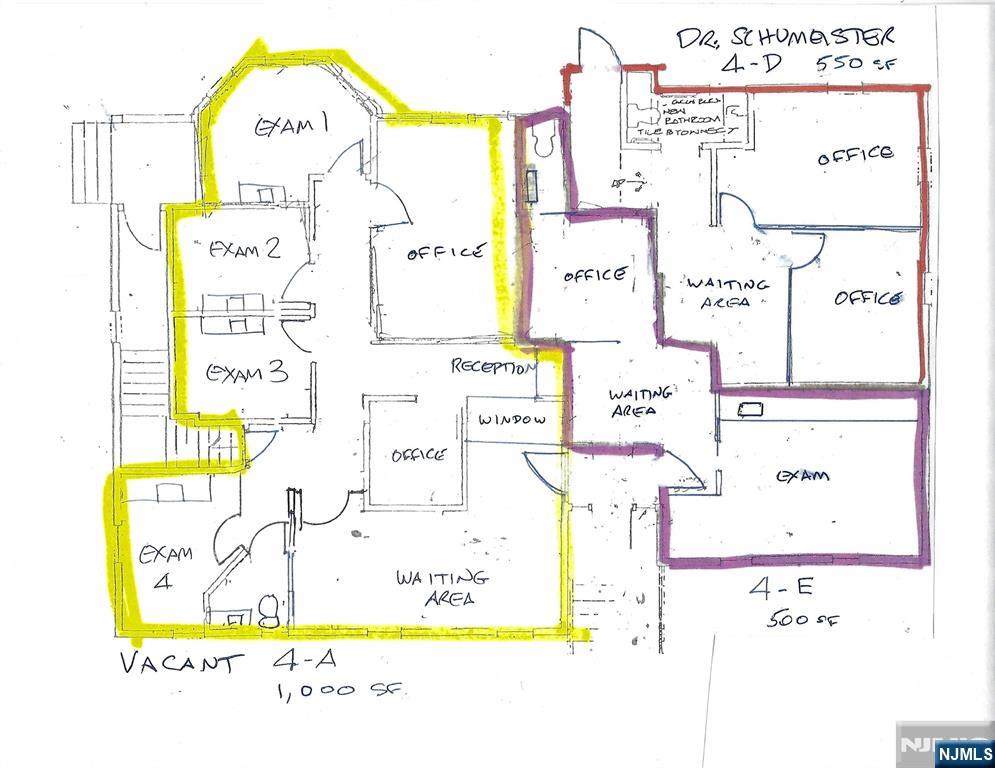 DR. SCHUMEISTER
4-D 550 SF
NEW
BATHROOM
EXAM 1
OFFICE
EXAM 2
OFFICE
OFFICE
WAITING
AREA
OFFICE
EXAM 3
RECEPTION
WAITING
AREA
WINDOW
OFFICE
EXAM
EXAM
4
WAITING
AREA
4-E
500 SF
VACANT 4-A
1,000 SF.
NJMLS